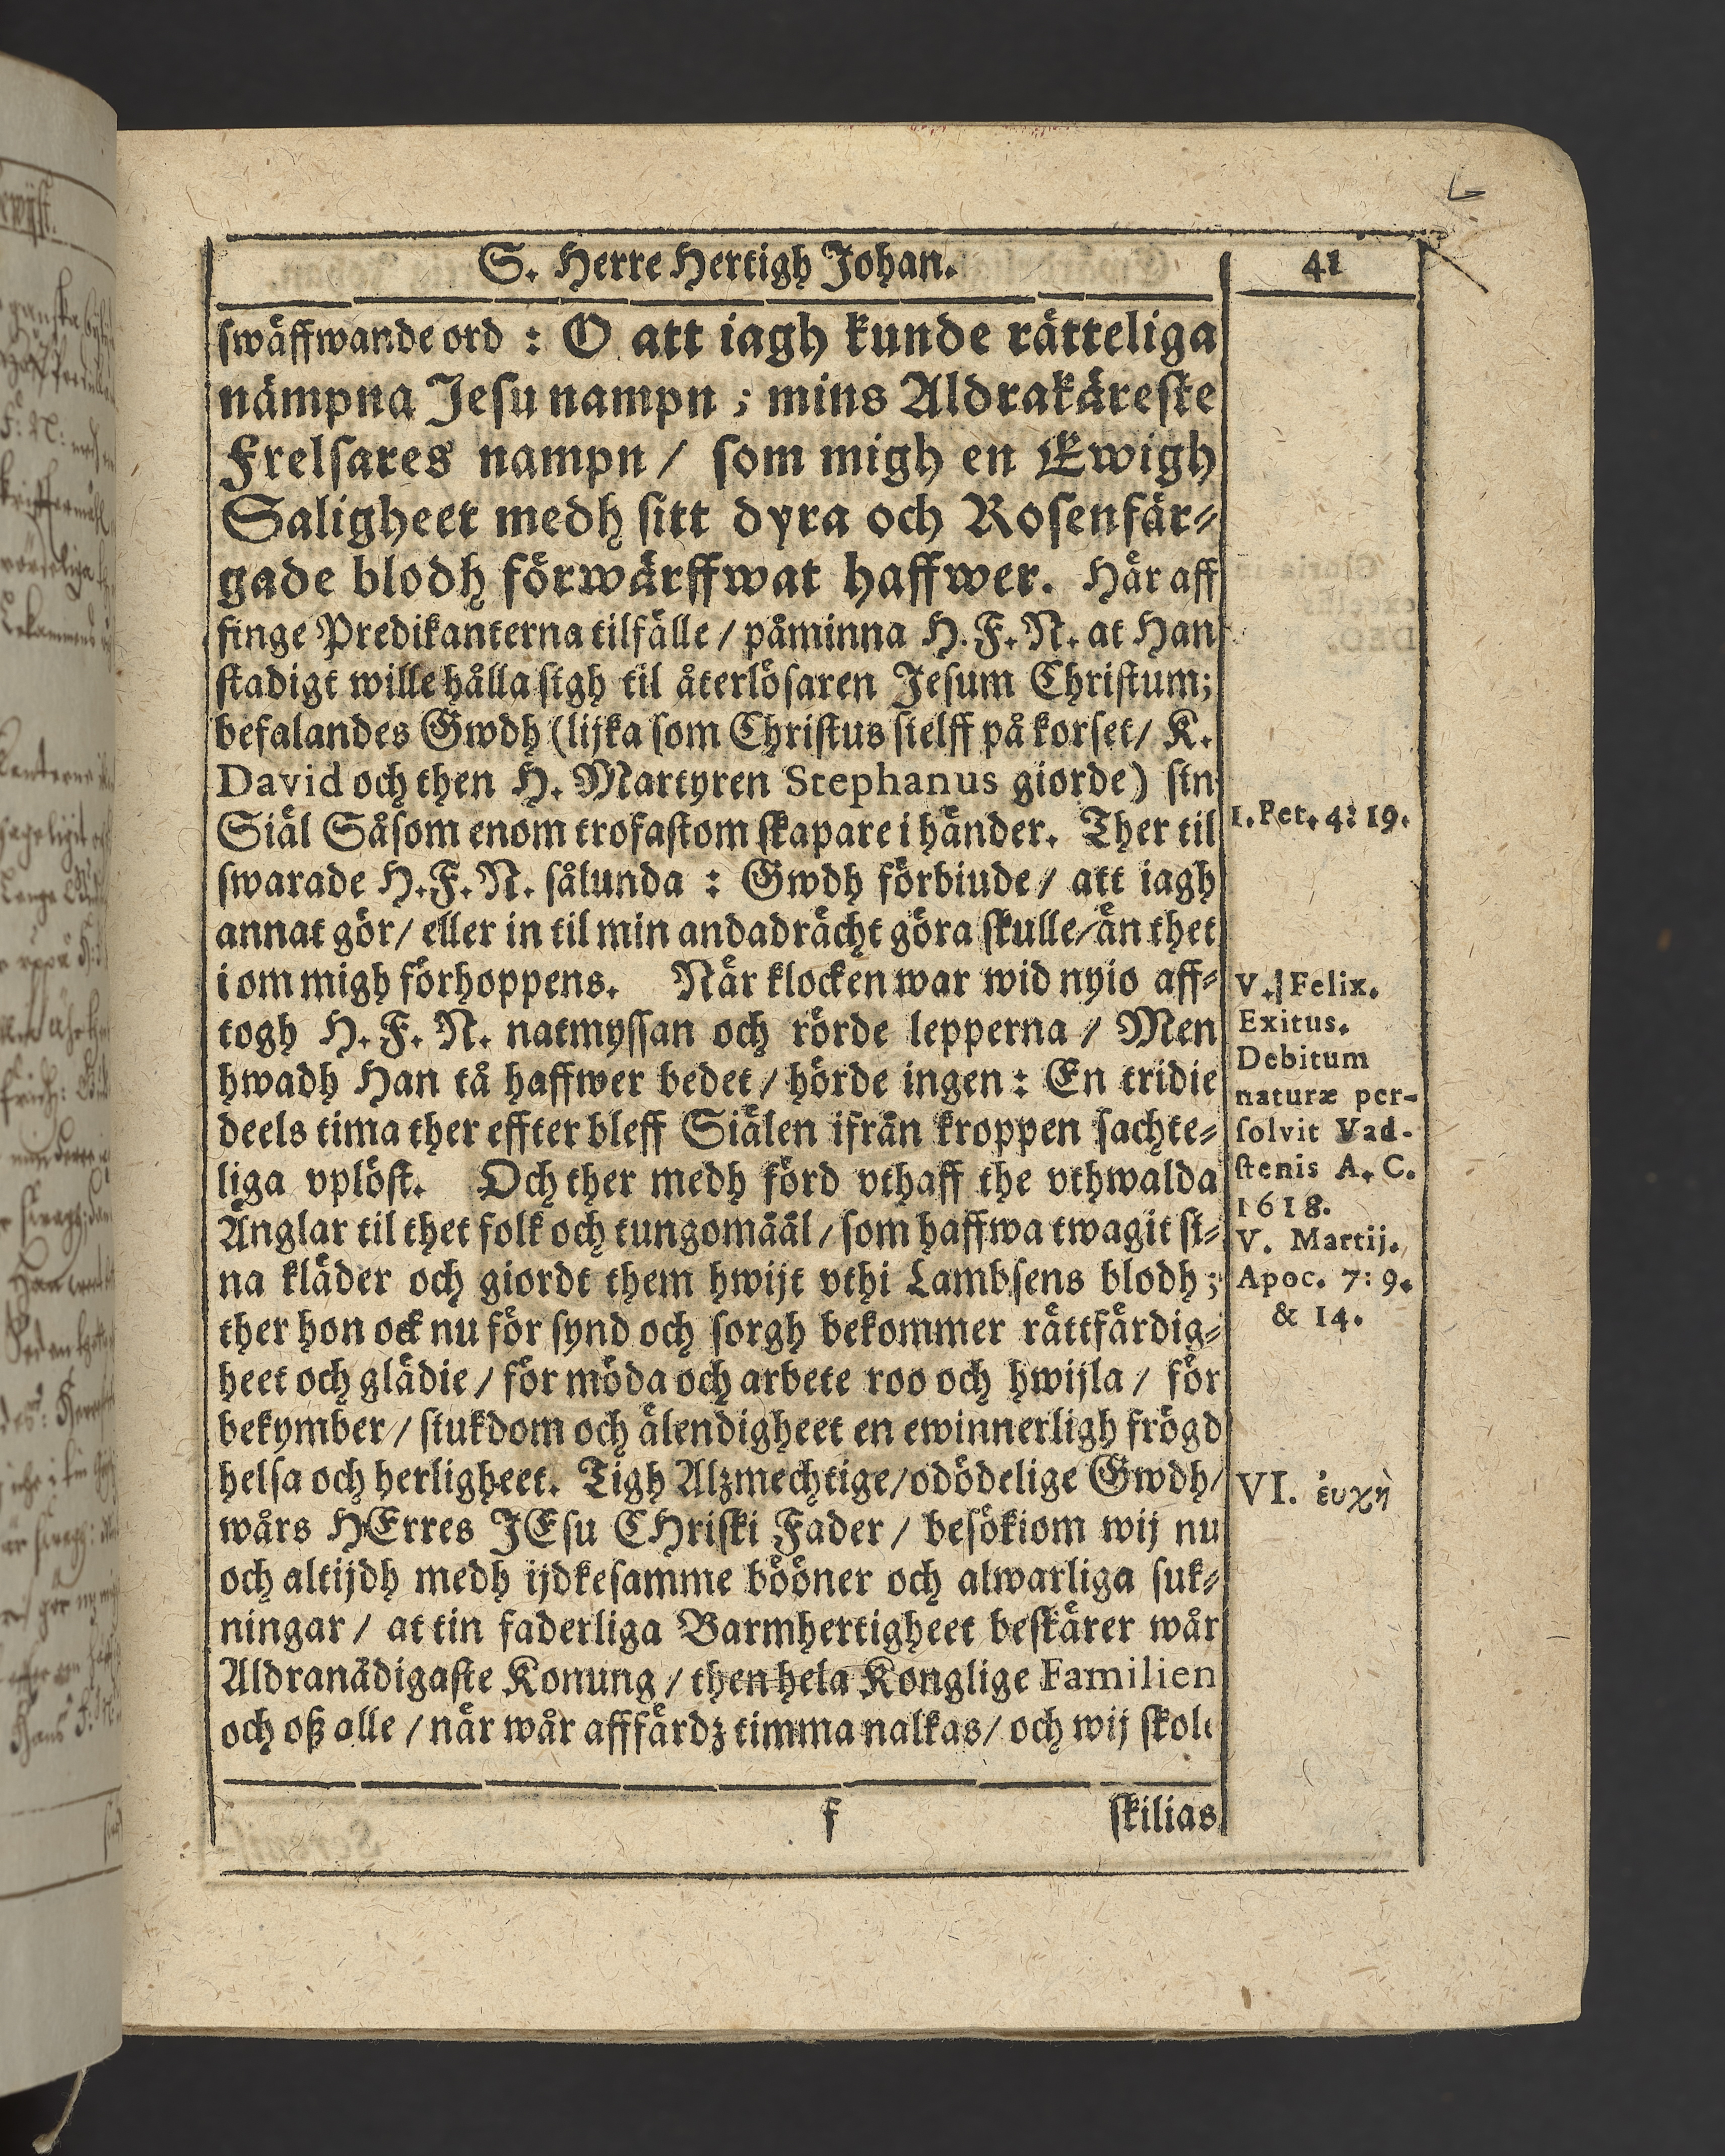 S. Herre Hertigh Johan.
41
swäffwande ord : O att iagh kunde rätteliga
nämpna Jesu nampn ; mins Aldrakäreste
Frelsares nampn / som migh en Ewigh
Saligheet medh sitt dyra och Rosenfär-
gade blodh förwärffwat haffwer. Här aff
finge Predikanterna tilfälle / påminna H. F. N. at Han
stadigt wille hålla sigh til återlösaren Jesum Christum;
befalandes Gwdh (lijka som Christus sielff på korset / K.
David och then H. Martyren Stephanus giorde) sin
Siäl Såsom enom trofastom skapare i händer. Ther til
swarade H. F. N. sålunda : Gwdh förbiude / att iagh
annat gör / eller in til min andadrächt göra skulle / än thet
i om migh förhoppens. När klocken war wid nyio aff-
togh H. F. N. natmyssan och rörde lepperna / Men
hwadh Han tå haffwer bedet / hörde ingen : En tridie
deels tima ther effter bleff Siälen ifrån kroppen sachte-
liga vplöst. Och ther medh förd vthaff the vthwalda
Änglar til thet folk och tungomäål / som haffwa twagit si-
na kläder och giordt them hwijt vthi Lambsens blodh ;
ther hon ock nu för synd och sorgh bekommer rättfärdig-
heet och glädie / för möda och arbete roo och hwijla / för
bekymber / siukdom och älendigheet en ewinnerligh frögd
helsa och herligheet. Tigh Alzmechtige / odödelige Gwdh /
wårs HErres JEsu CHristi Fader / besökiom wij nu
och altijdh medh ijdkesamme bööner och alwarliga suk-
ningar / at tin faderliga Barmhertigheet beskärer wår
Aldranådigaste Konung / then hela Konglige Familien
och oß alle / när wår affärdz timma nalkas / och wij skole
f
skilias
1. Pet. 4: 19.
V. Felix.
Exitus.
Debitum
naturæ per-
solvit Vad-
stenis A. C.
1618.
V. Martij.
Apoc. 7: 9.
& 14.
VI. ἐυχὴ